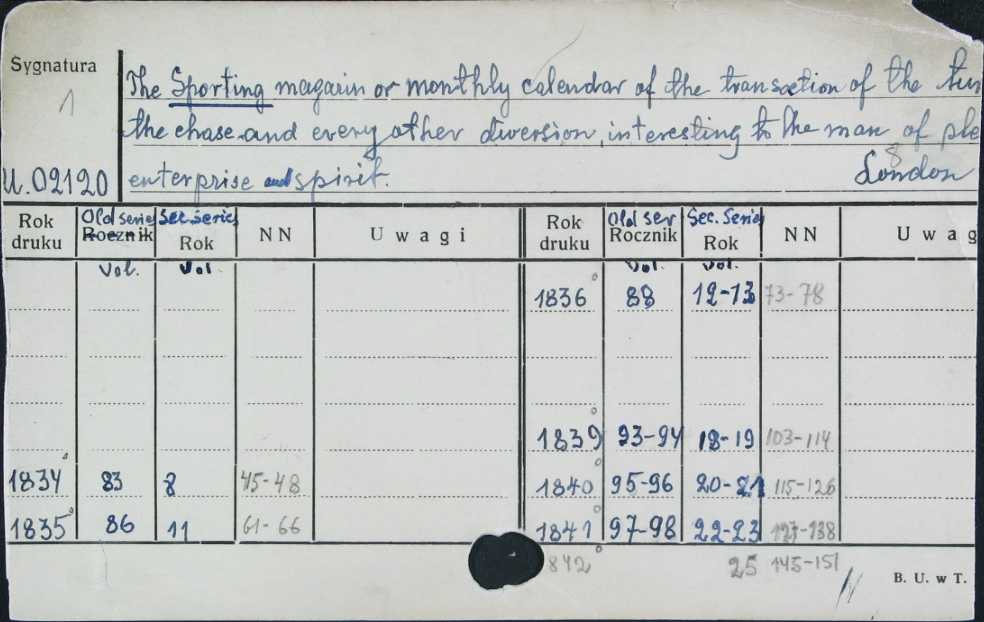 Sygnatura
1
The Sporting magazin or monthly calendar of the transaction of the tur
the chase and every other diversion, interesting to the man of ple
U. 02120 enterprise and spirit. 8 London
Rok druku Old serie Rocznik Sec. serie Rok NN Uwagi Rok druku Old ser Rocznik Sec. Serie Rok NN Uwag
Vol. Vol. Vol. Vol.
1836 88 12-13 73-78
1839 93-94 18-19 103-114
1834 83 8 45-48 1840 95-96 20-21 115-126
1835 86 11 61-66 1841 97-98 22-23 127-138
842 25 145-151
B. U. w T.